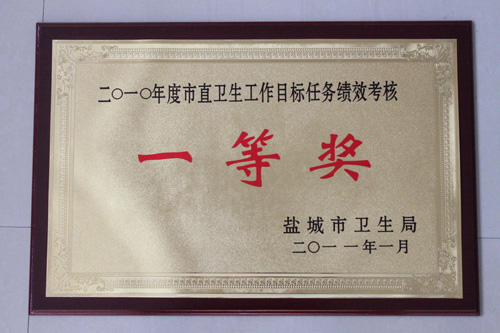 二〇一〇年度市直卫生工作目标任务绩效考核
一等奖
盐城市卫生局
二〇一一年一月